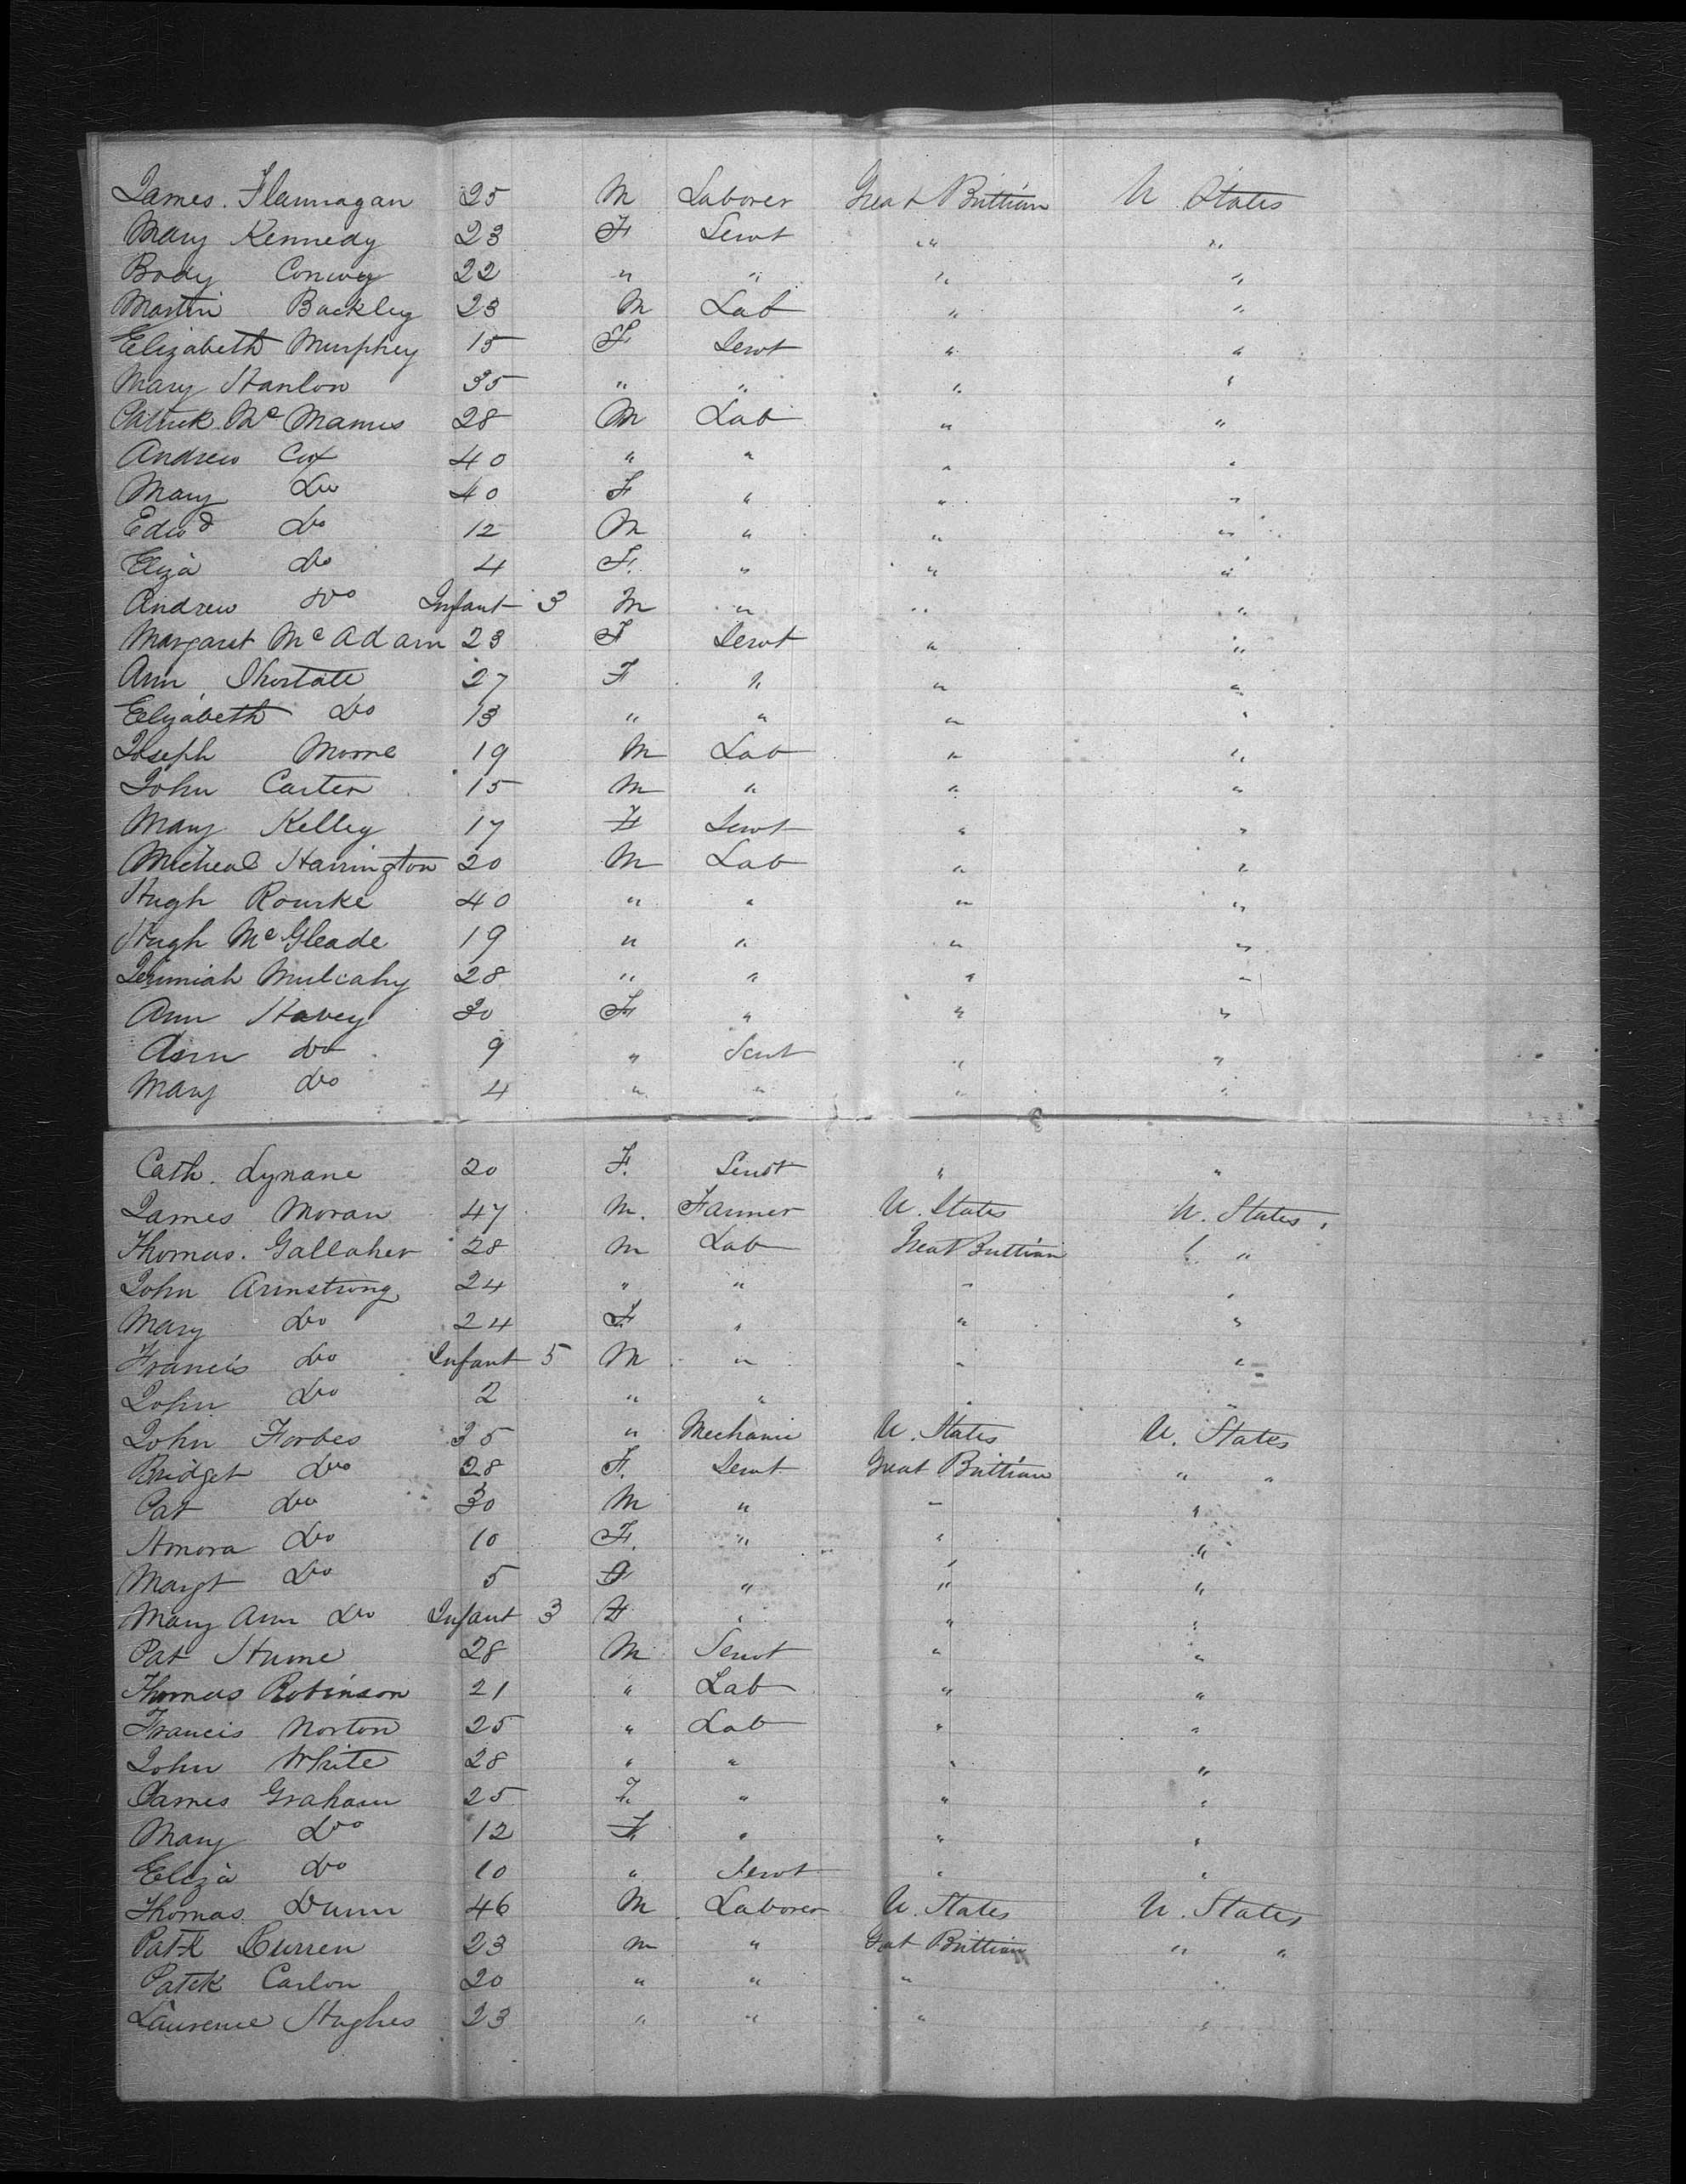 James. Flannagan 25 M Laborer Great Brittian U States
Mary Kennedy 23 F Servt " "
Body Conway 22 " " " "
Martin Buckley 23 M Lab " "
Elizabeth Murphey 15 F Servt " "
Mary Hanlon 35 " " " "
Patrick Mc Manus 28 M Lab " "
Andrew Cox 40 " " " "
Mary Do 40 F " " "
Edwd Do 12 M " " "
Eliza Do 4 F. " " "
Andrew Do Infant 3 M " " "
Margaret Mc Adam 23 F Servt " "
Ann 27 F " " "
Elizabeth Do 13 " " " "
Joseph Moore 19 M Lab " "
John Carter 15 M " " "
Mary Kelley 17 F Servt " "
Micheal Harrington 20 M Lab " "
Hugh Rourke 40 " " " "
Hugh Mc Gleade 19 " " " "
Jerimiah Mulcahy 28 " " " "
Ann Havey 30 F " " "
Ann Do 9 " Servt " "
Mary Do 4 " " " "
Cath. Lynane 20 F. Servt " "
James Moran 47 M. Farmer U. States U. States.
Thomas. Gallaher 28 M Lab Great Brittian " "
John Armstrong 24 " " " "
Mary Do 24 F " " "
Francis Do Infant 5 M " " "
John Do 2 " " " "
John Forbes 35 " Mechanic U. States U. States
Bridget Do 28 F. Servt Great Brittian " "
Pat Do 30 M " " "
Hnora Do 10 F. " " "
Margt Do 5 F " " "
Mary Ann Do Infant 3 F " " "
Pat Hume 28 M Servt " "
Thomas Robinson 21 " Lab " "
Francis Norton 25 " Lab " "
John White 28 " " " "
James Graham 25 F. " " "
Mary Do 12 F. " " "
Eliza Do 10 " Servt " "
Thomas Dunn 46 M Laborer U. States U. States
Patk Curren 23 M " Gat Brittian " "
Patck Carlon 20 " " " "
Laurence Hughes 23 " " " "